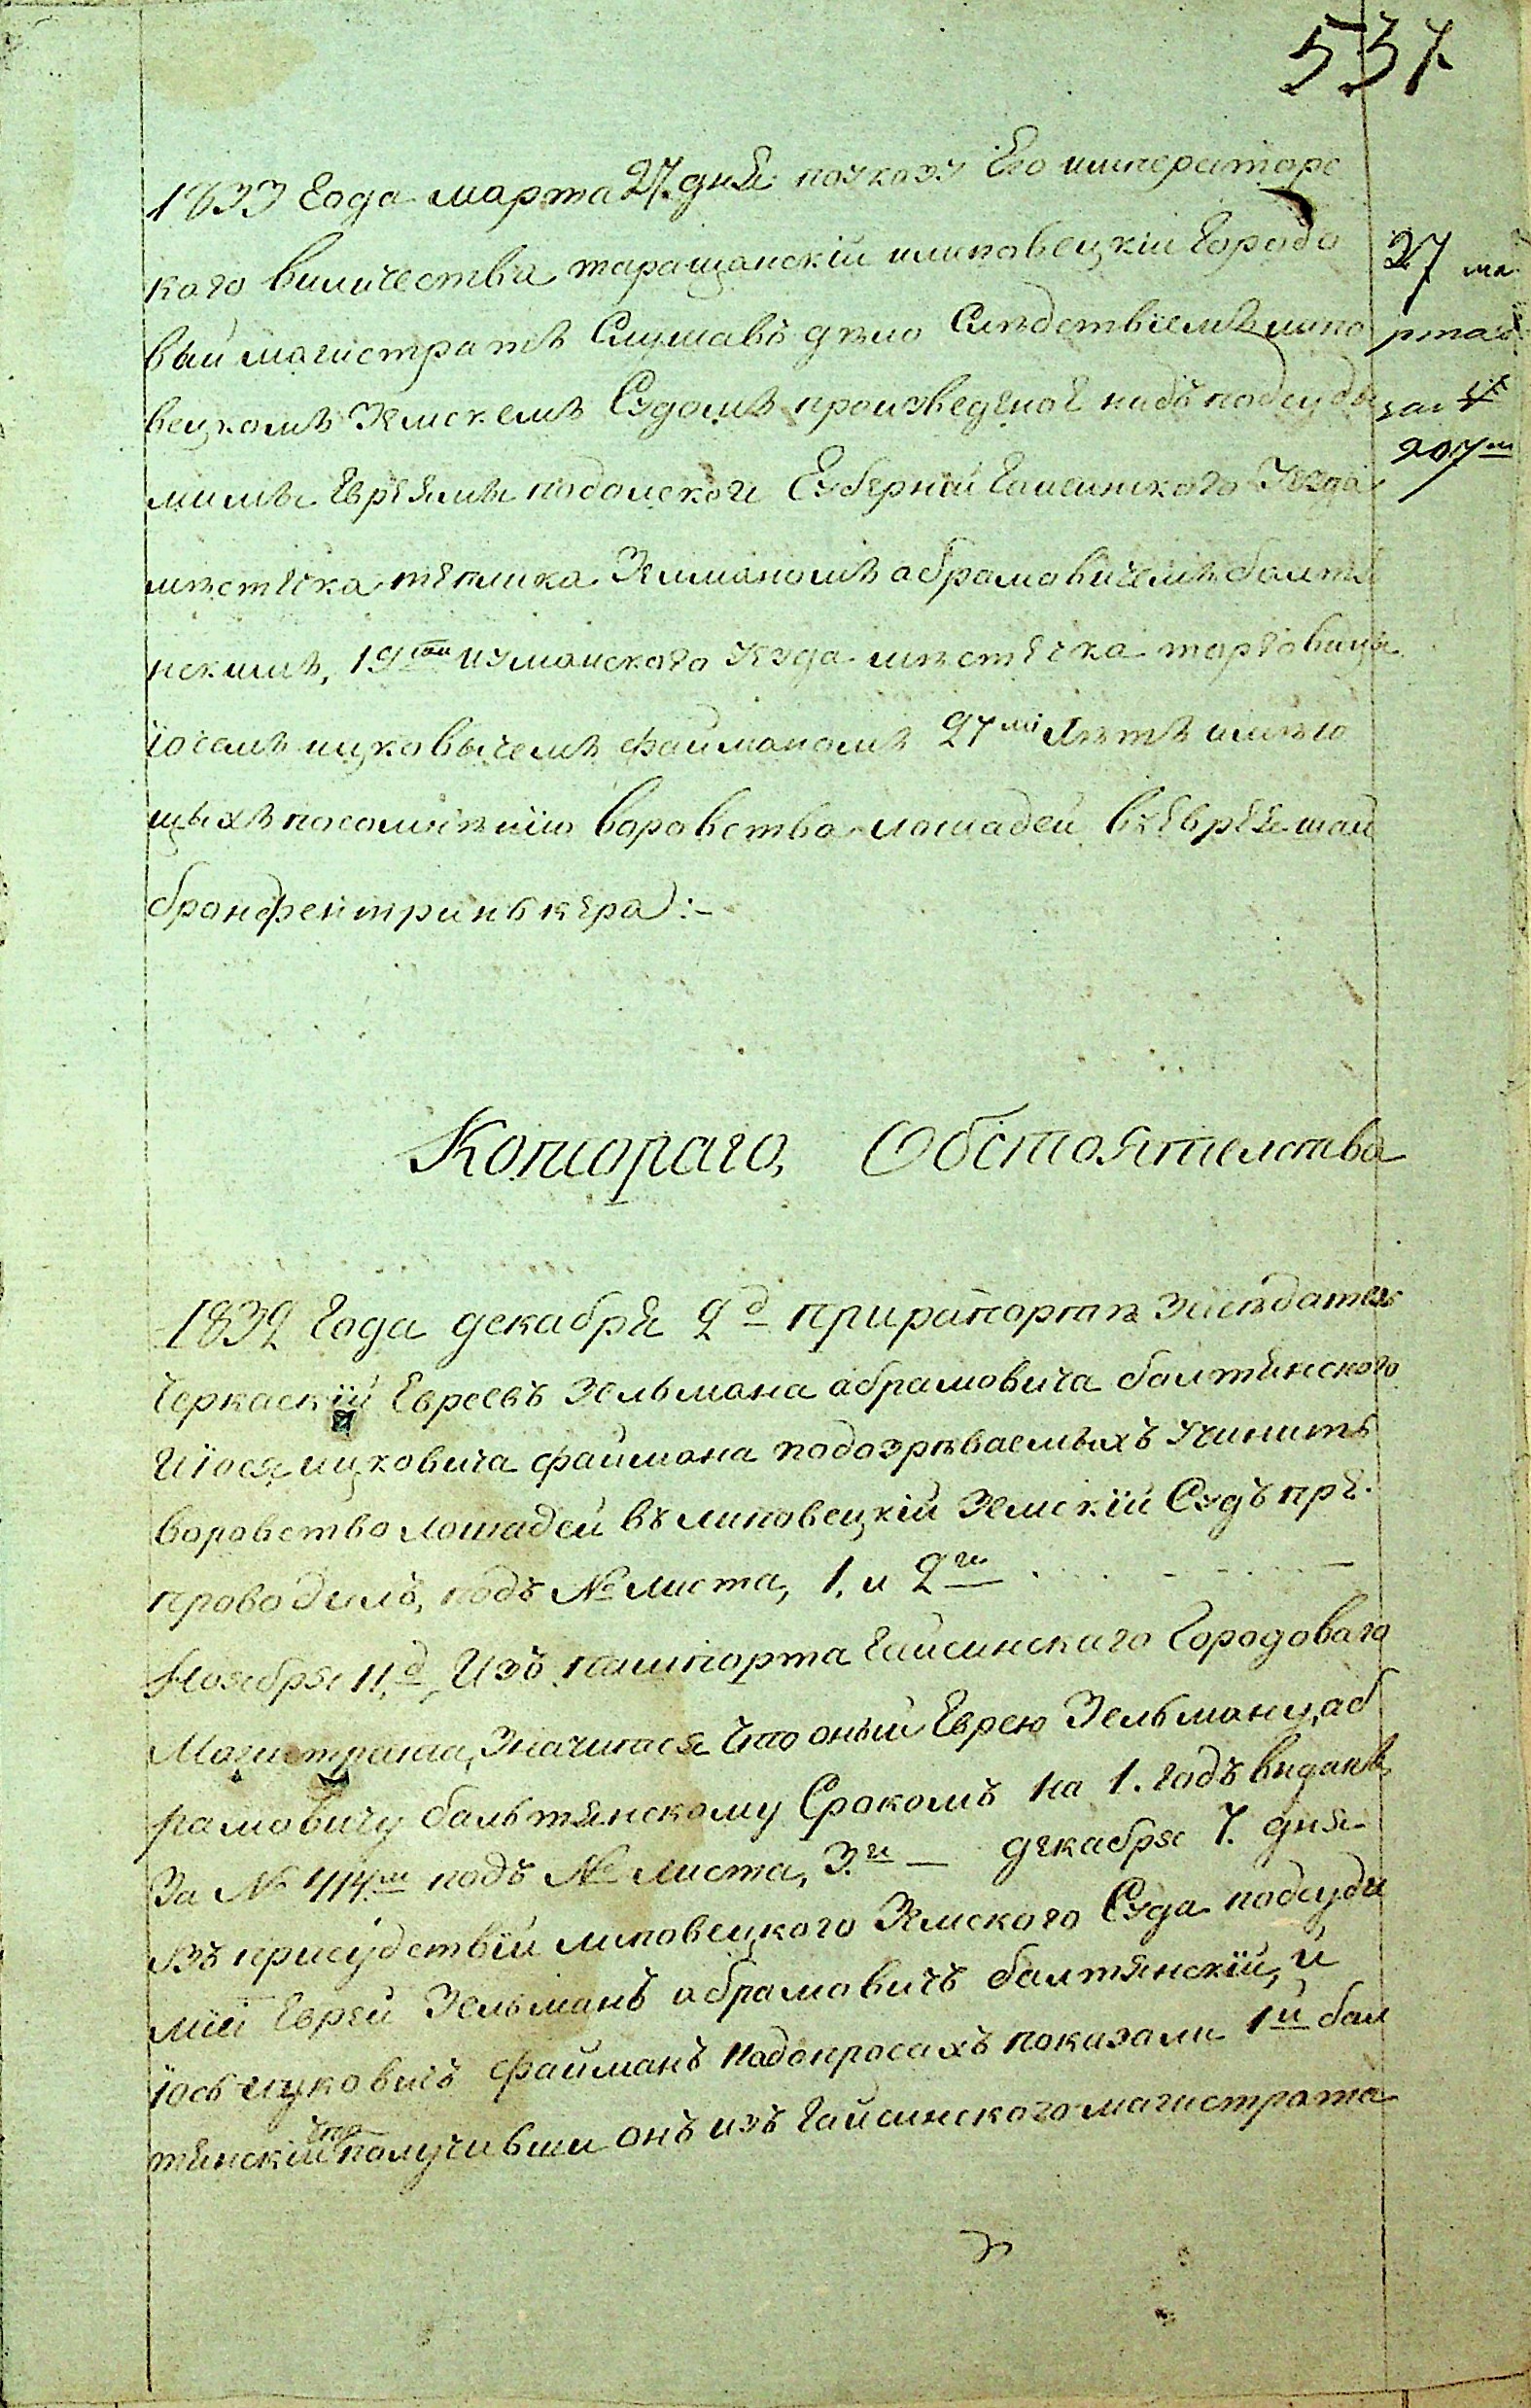 537.
1833 Года марта 27. дня поуказу Его императорс
кого виличества таращанскій илиповецкій Городо
27 ма
вый магистратъ Слушавъ дѣло Следствіемъ липо
рта
вецкомъ Земскемъ Судомъ произведеное надъ подсуди
за №
207м
мимы Евреямы подолской Губерній Гаисинского Уезда
мѣстечка тѣплика Зелманомъ абрамовичемъ балтя
нскимъ, 19 иуманского Уезда мѣстечка торговицы
іосемъ ицковычемъ файманомъ 27ми Лѣтъ имѣю
щыхъ посомнѣнію воровства лошадей въЕврея
бронфентринькера:-
Котораго, Обстоятелства
1832 Года декабря 2д прирапортѣ Засѣдатель
Черкаскій Евреевъ Зельмана абрамовича балтянского
Иіося ицковича файмана подозрѣваемыхъ Учинить
воровство лошадей въ липовецкій Земскій Судъ пре.
проводилъ, подъ № листа, 1. и 2ги
Ноября 11.д Изъ пашпорта Гайсинскаго Городоваго
Магистрата, Значится Что оный Еврею Зельману, аб
рамовичу бальтянскому Срокомъ на 1. годъ виданъ
За № 414м подъ № листа, 3.и — декабря 7. дня
Въ присудствіи липовецкого Земского Суда подсуди
міи Евреи Зельманъ абрамовичъ балтянскій, и
іось ицковичъ файманъ Надопросахъ показали 1й бал
тянскій что получивши онъ изъ Гайсинского магистрата